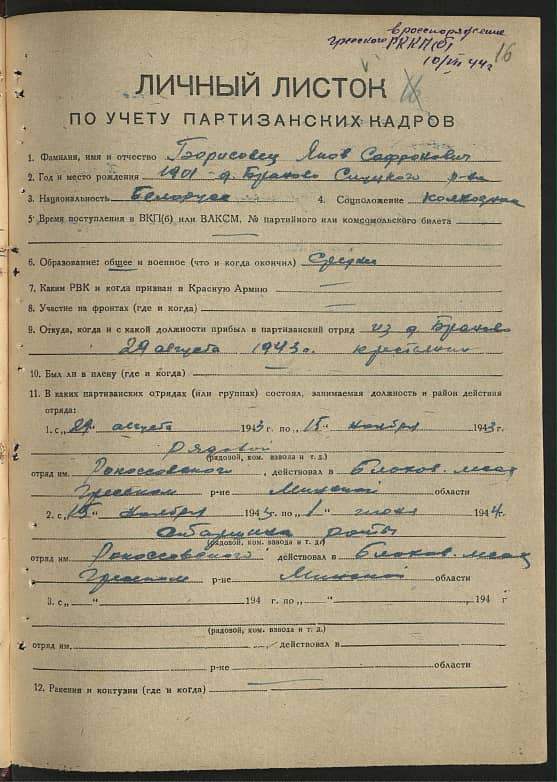 в распоряжение
Гресского РККП(б)
10/VII 44г
16
ЛИЧНЫЙ ЛИСТОК
ПО УЧЕТУ ПАРТИЗАНСКИХ КАДРОВ
1. Фамилия, имя и отчество Борисовец Яков Сафронович
2. Год и место рождения 1901 д. Браново р-на
3. Национальность Белорусс 4. Соцположение колхозник
5. Время поступления в ВКП(б) или ВЛКСМ, № партийного или комсомольского билета
6. Образование: общее и военное (что и когда окончил) Среднее
7. Каким РВК и когда призван в Красную Армию —
8. Участие на фронтах (где и когда) —
9. Откуда, когда и с какой должности прибыл в партизанский отряд из д. Браново
29 августа 1943г. крестьянин
10. Был ли в плену (где и когда) —
11. В каких партизанских отрядах (или группах) состоял, занимаемая должность и район действия
отряда:
1. с „29 августа 1943 г. по „15" ноября 1943 г.
Рядовой
(рядовой, ком. взвода и т. д.)
отряд им. Рокоссовского, действовал в
Гресском р-не Минской области
2. с „15" ноября 1943 г. по „1 июля 1944 г.
старшина роты
(рядовой, ком. взвода и т. д.)
отряд им. Рокоссовского действовал в
Гресском р-не Минской области
3. с „ " 194 г. по „ " 194 г
(рядовой, ком. взвода и т. д.)
отряд им. , действовал в
р-не области
12. Ранения и контузии (где и когда) —